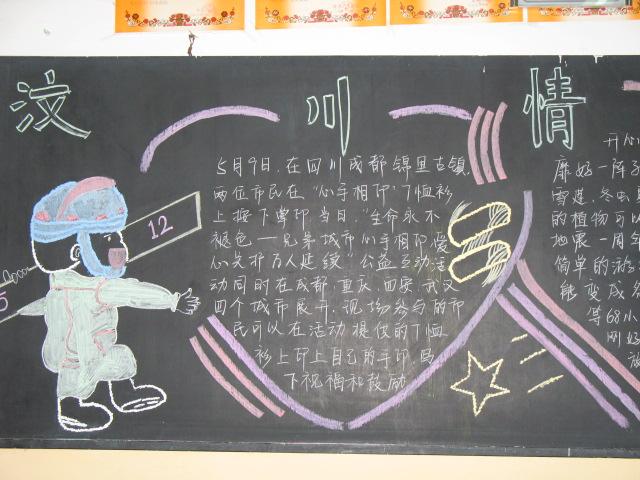 汶川情
5月9日,在四川成都锦里古镇,
两位市民在"心手相印"T恤衫
上按下掌印当日,"生命永不
褪色——兄弟城市心手相印爱
心先祈万人延续"公益互动活
动同时在成都、重庆、西安、武汉
四个城市展开,现场参与的市
民可以在活动提供的T恤
衫上印上自己的手印,写
下祝福和鼓励
12
开心
靡好一阵
雪莲、冬虫
的植物可
地展一周
简单的游
能变成
等68小
刚好